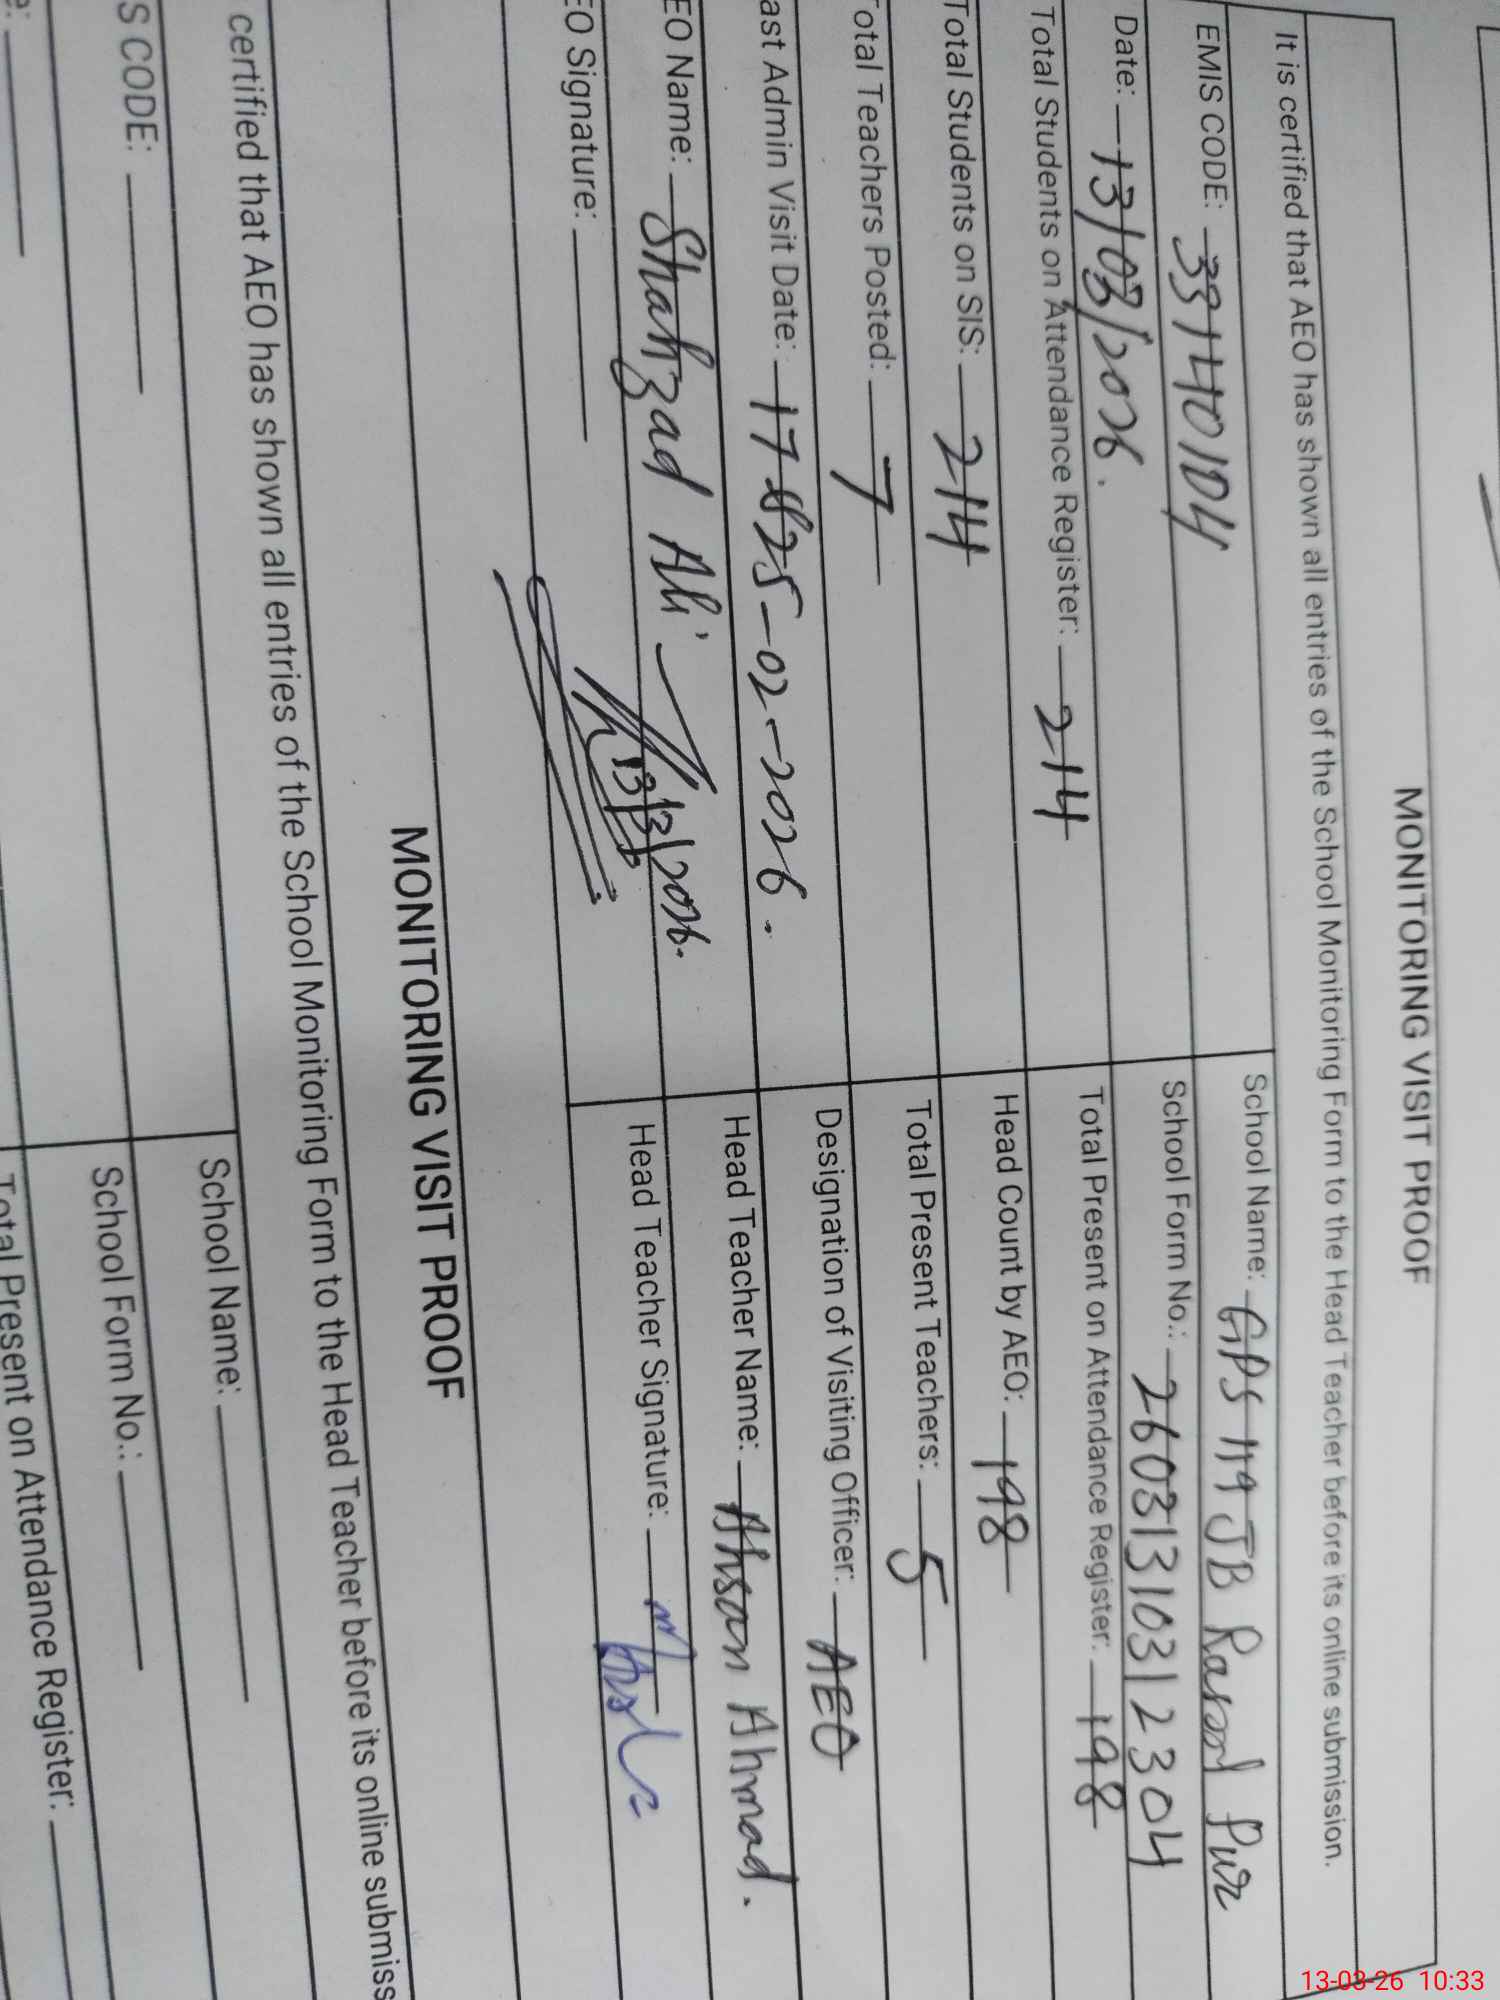 MONITORING VISIT PROOF
It is certified that AEO has shown all entries of the School Monitoring Form to the Head Teacher before its online submission.
EMIS CODE: 33140104 School Name: GPS 119 JB Rasool Pur
Date: 13/03/2026. School Form No.: 26031310312304
Total Students on Attendance Register: 214 Total Present on Attendance Register: 198
Total Students on SIS: 214 Head Count by AEO: 198
otal Teachers Posted: 7 Total Present Teachers: 5
ast Admin Visit Date: 17 25-02-2026. Designation of Visiting Officer: AEO
EO Name: Shahzad Ali Head Teacher Name: Ahsan Ahmad.
EO Signature: 13/3/2026. Head Teacher Signature:
MONITORING VISIT PROOF
certified that AEO has shown all entries of the School Monitoring Form to the Head Teacher before its online submiss
S CODE: School Name:
e: School Form No.:
Total Present on Attendance Register:
13-03-26 10:33